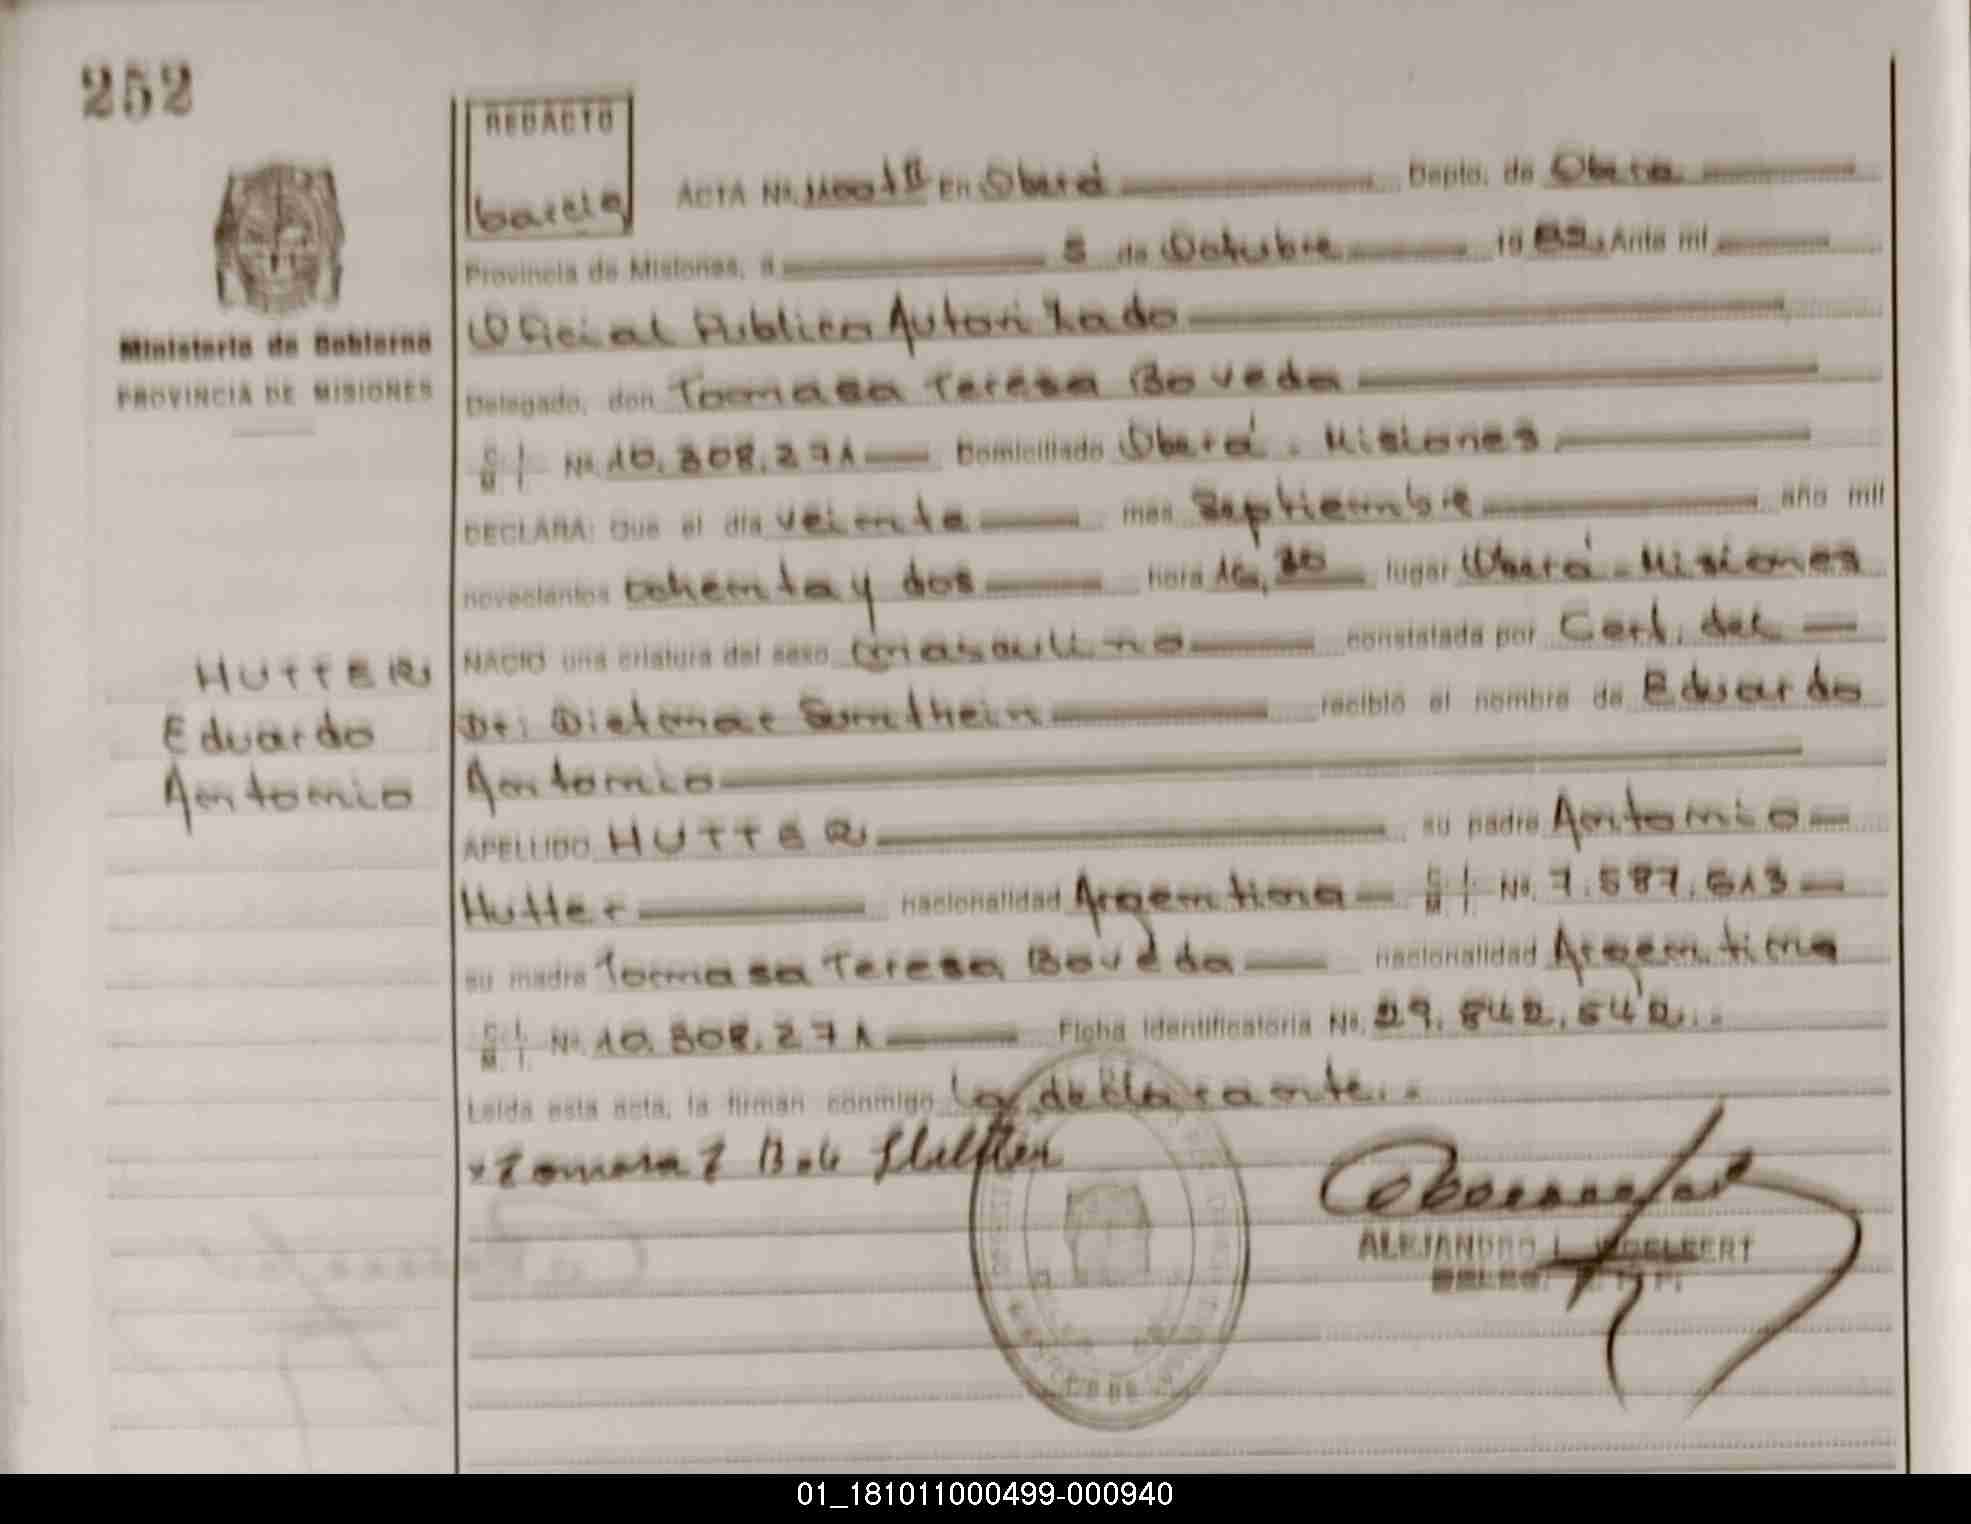 252
REDACTO
García
ACTA Nº En Oberá Depto. de Oberá
Provincia de Misiones, a 5 de Octubre 19 82. Ante mí
Oficial Público Autorizado
Ministerio de Gobierno
PROVINCIA DE MISIONES
Delegado, don Tomasa Teresa Boveda
C. I. M. I. Nº 10.308.271 Domiciliado Oberá - Misiones
DECLARA: Que el día veinte mes Septiembre año mil
novecientos ochenta y dos hora 16,30 lugar Oberá - Misiones
NACIO una criatura del sexo masculino constatada por Cert. del
HUTTER
Dr: Dietmar Sumthein recibió el nombre de Eduardo
Eduardo
Antonio
Antonio
APELLIDO HUTTER su padre Antonio
Hutter nacionalidad Argentina C. I. M. I. Nº 7.587.513
su madre Tomasa Teresa Boveda nacionalidad Argentina
C. I. M. I. Nº 10.308.271 Ficha Identificatoria Nº 29.542.542.-
Leída esta acta, la firman conmigo la declarante.-
x Tomasa T B. de Hutter
ALEJANDRO L. WOELFERT
01_181011000499-000940